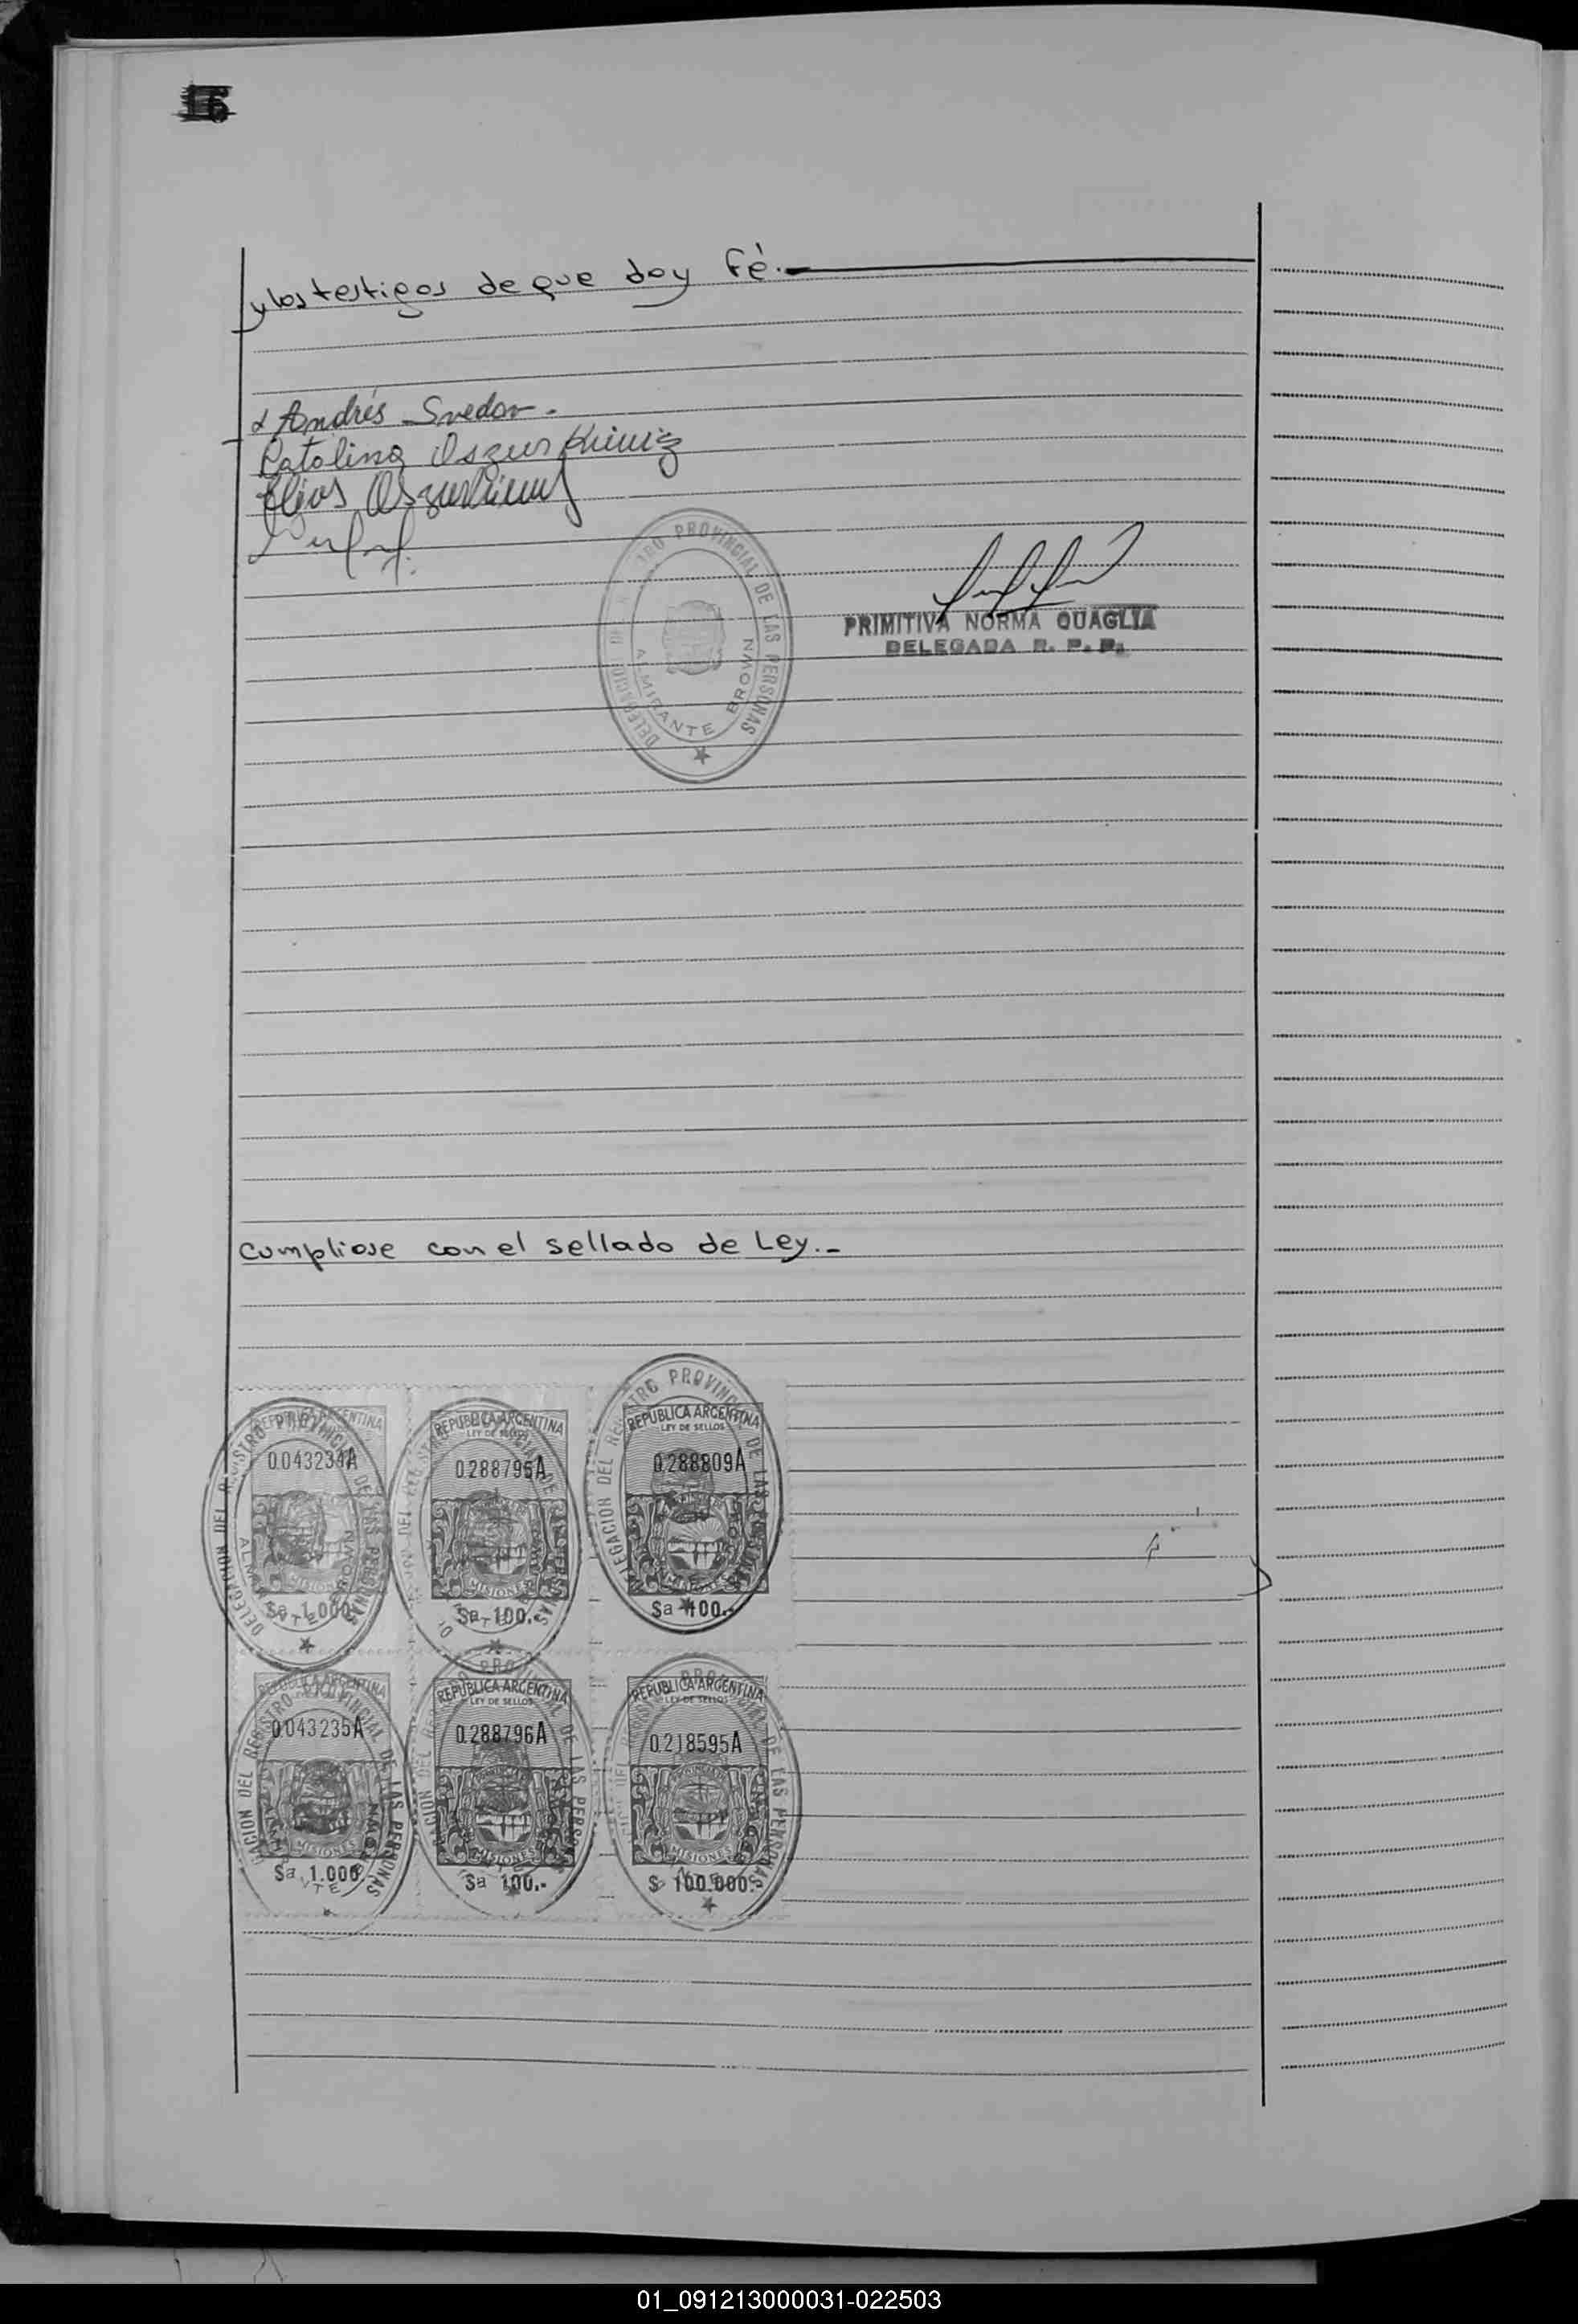 y los testigos de que doy fé.-
Andrés Svedor.
Catalina
Elias
PROVINCIAL DE LAS PERSONAS
ALMIRANTE BROWN
PRIMITIVA NORMA QUAGLIA
DELEGADA R. P. P.
Cumpliose con el sellado de Ley.-
REPUBLICA ARGENTINA
0.043234A
MISIONES
$a 1.000
REPUBLICA ARGENTINA
LEY DE SELLOS
0.288795A
MISIONES
$a 100.-
REPUBLICA ARGENTINA
LEY DE SELLOS
0.288809A
$a 100.-
DELEGACION DEL REGISTRO PROVINCIAL DE LAS PERSONAS
REPUBLICA ARGENTINA
0.043235A
MISIONES
$a 1.000
REPUBLICA ARGENTINA
LEY DE SELLOS
0.288796A
MISIONES
$a 100.-
REPUBLICA ARGENTINA
LEY DE SELLOS
0.218595A
MISIONES
$ 100.000.-
01_091213000031-022503